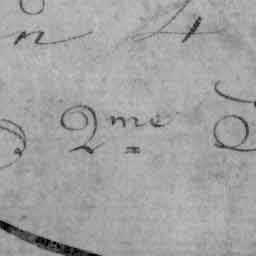 n 4
2me